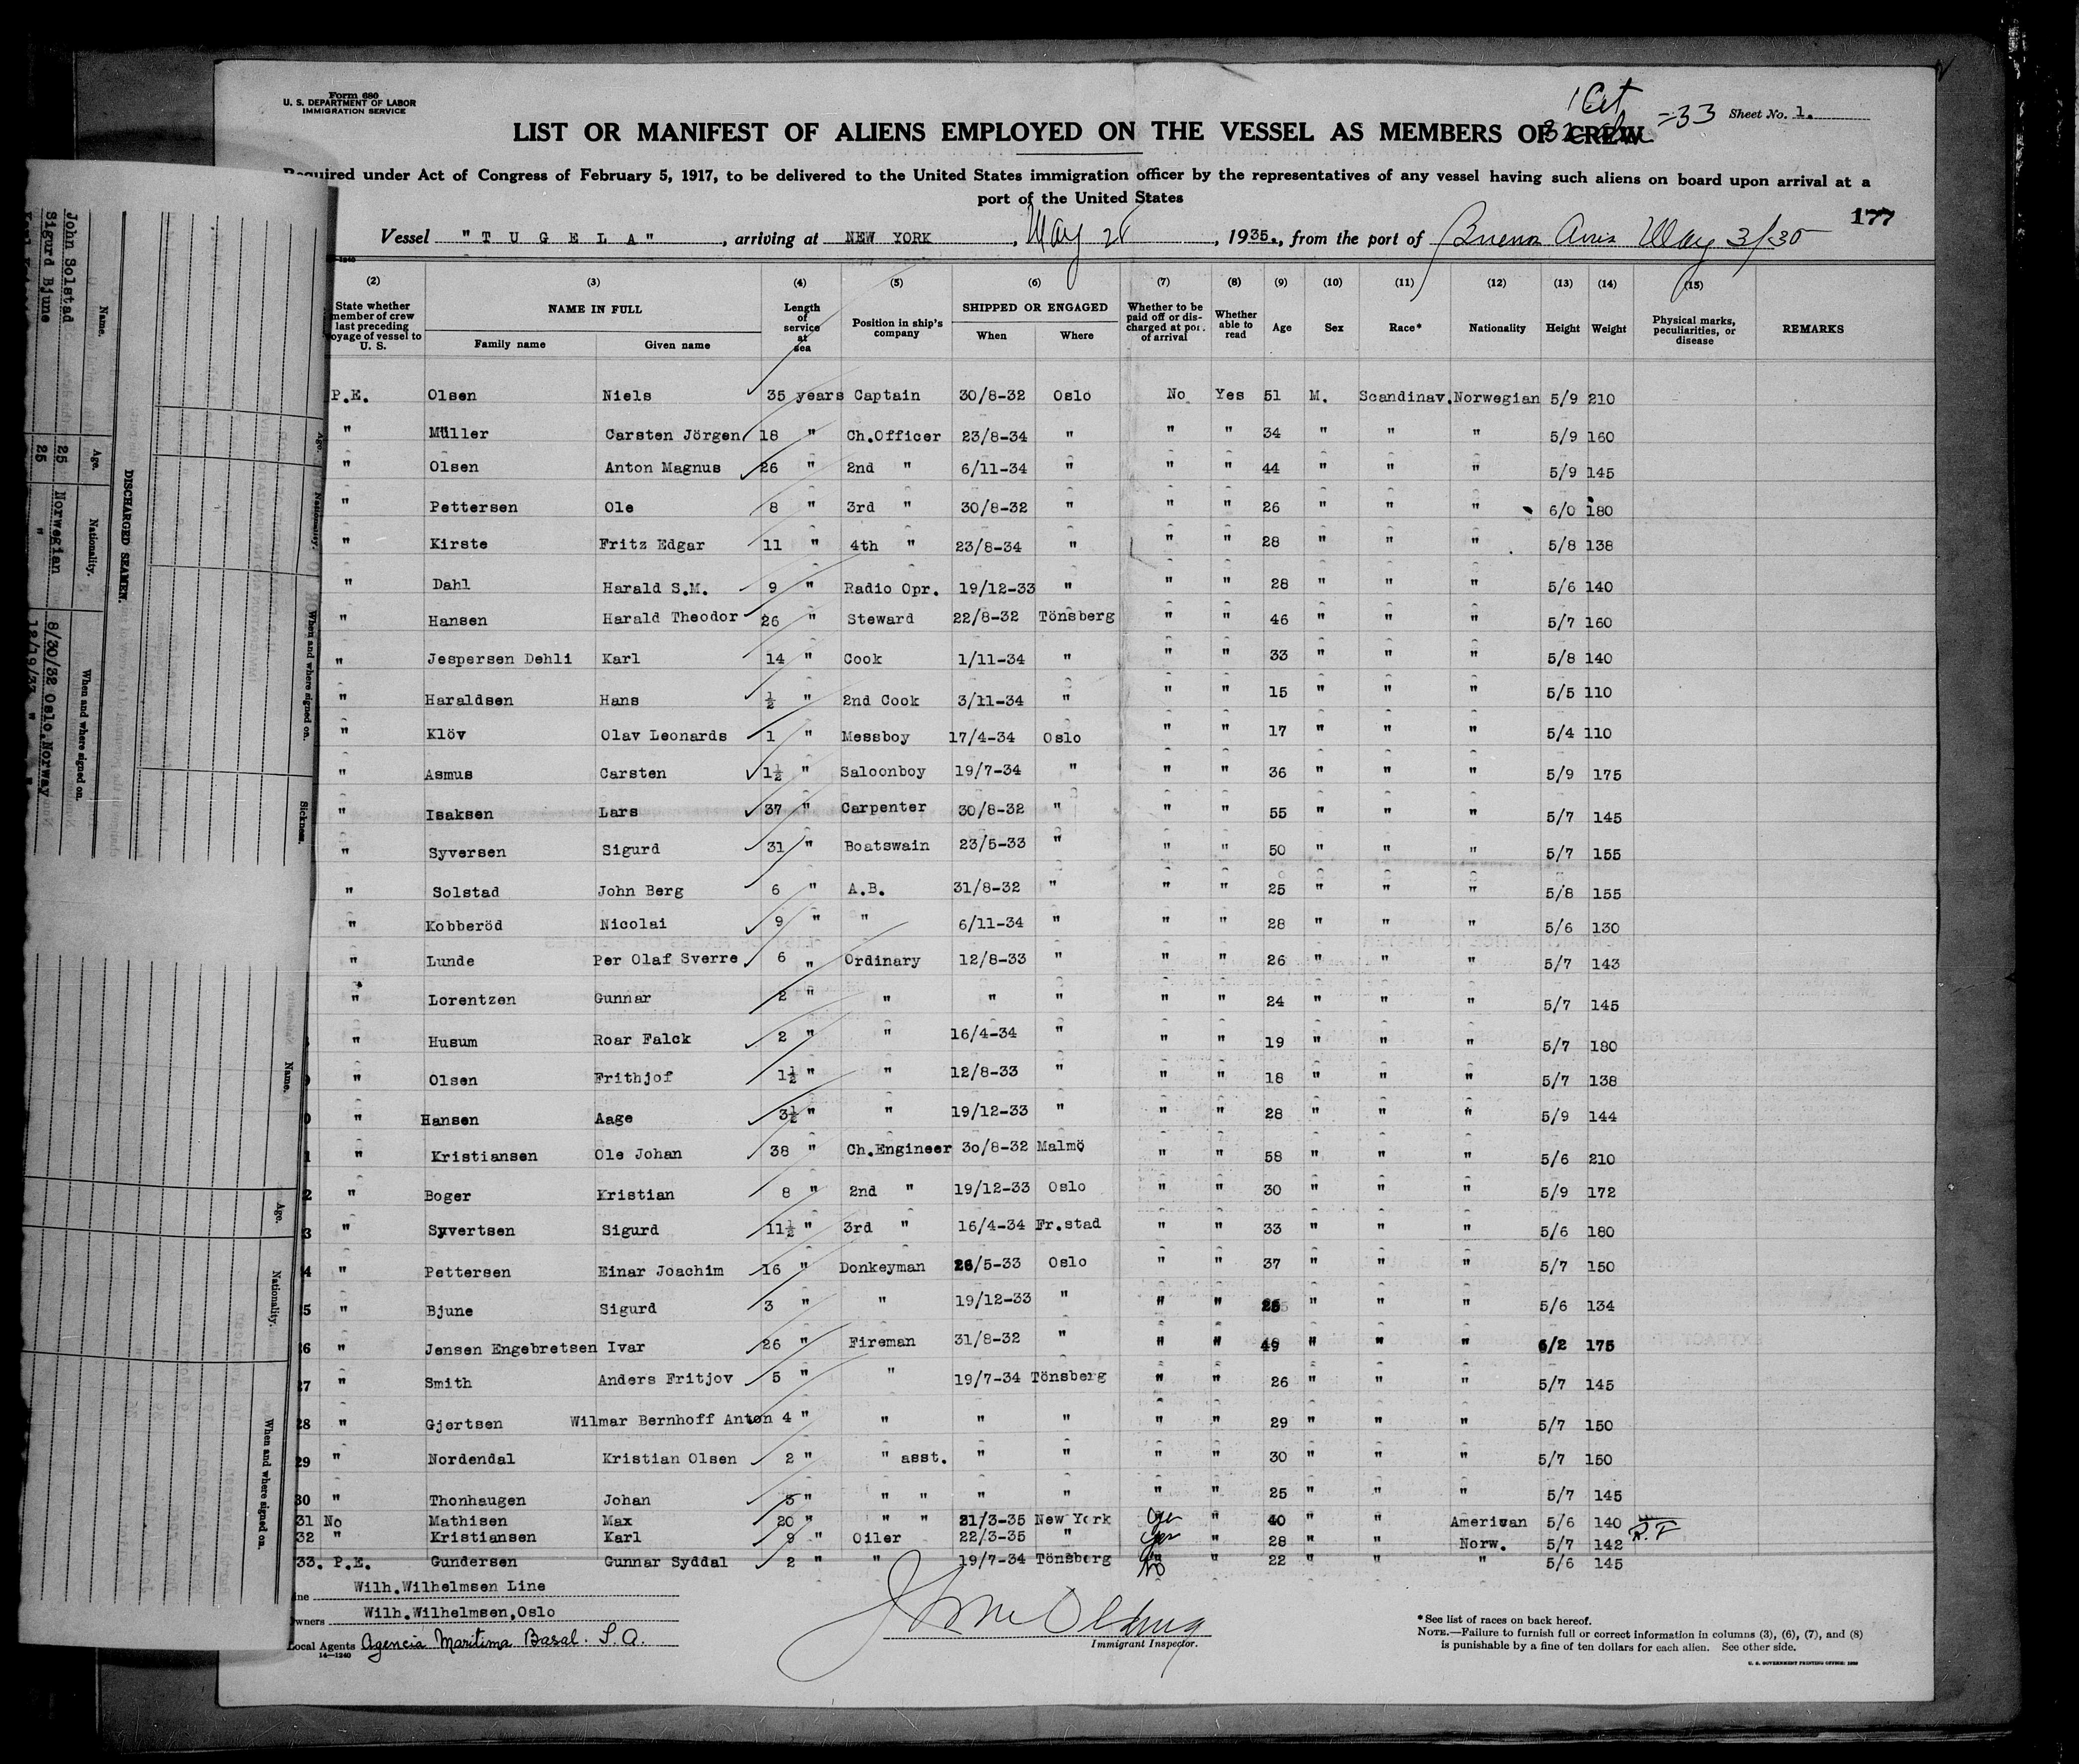 Form 680
U. S. DEPARTMENT OF LABOR
IMMIGRATION SERVICE
1 Cit
=33 Sheet No. 1.
LIST OR MANIFEST OF ALIENS EMPLOYED ON THE VESSEL AS MEMBERS OF CREW
Required under Act of Congress of February 5, 1917, to be delivered to the United States immigration officer by the representatives of any vessel having such aliens on board upon arrival at a
port of the United States
177
Vessel "TUGELA", arriving at NEW YORK, May 28, 1935., from the port of Buenos Aires May 3/35
(2) (3) (4) (5) (6) (7) (8) (9) (10) (11) (12) (13) (14) (15)
State whether member of crew last preceding voyage of vessel to U. S. NAME IN FULL Family name Given name Length of service at sea Position in ship's company SHIPPED OR ENGAGED When Where Whether to be paid off or discharged at port of arrival Whether able to read Age Sex Race* Nationality Height Weight Physical marks, peculiarities, or disease REMARKS
P.E. Olsen Niels 35 years Captain 30/8-32 Oslo No Yes 51 M. Scandinav. Norwegian 5/9 210
" Müller Carsten Jörgen 18 " Ch.Officer 23/8-34 " " " 34 " " " 5/9 160
" Olsen Anton Magnus 26 " 2nd " 6/11-34 " " " 44 " " " 5/9 145
" Pettersen Ole 8 " 3rd " 30/8-32 " " " 26 " " " 6/0 180
" Kirste Fritz Edgar 11 " 4th " 23/8-34 " " " 28 " " " 5/8 138
" Dahl Harald S.M. 9 " Radio Opr. 19/12-33 " " " 28 " " " 5/6 140
" Hansen Harald Theodor 26 " Steward 22/8-32 Tönsberg " " 46 " " " 5/7 160
" Jespersen Dehli Karl 14 " Cook 1/11-34 " " " 33 " " " 5/8 140
" Haraldsen Hans ½ " 2nd Cook 3/11-34 " " " 15 " " " 5/5 110
" Klöv Olav Leonards 1 " Messboy 17/4-34 Oslo " " 17 " " " 5/4 110
" Asmus Carsten 1½ " Saloonboy 19/7-34 " " " 36 " " " 5/9 175
" Isaksen Lars 37 " Carpenter 30/8-32 " " " 55 " " " 5/7 145
" Syversen Sigurd 31 " Boatswain 23/5-33 " " " 50 " " " 5/7 155
" Solstad John Berg 6 " A.B. 31/8-32 " " " 25 " " " 5/8 155
" Kobberöd Nicolai 9 " " 6/11-34 " " " 28 " " " 5/6 130
" Lunde Per Olaf Sverre 6 " Ordinary 12/8-33 " " " 26 " " " 5/7 143
" Lorentzen Gunnar 2 " " " " " " 24 " " " 5/7 145
" Husum Roar Falck 2 " " 16/4-34 " " " 19 " " " 5/7 180
" Olsen Frithjof 1½ " " 12/8-33 " " " 18 " " " 5/7 138
" Hansen Aage 3½ " " 19/12-33 " " " 28 " " " 5/9 144
1 " Kristiansen Ole Johan 38 " Ch.Engineer 30/8-32 Malmö " " 58 " " " 5/6 210
2 " Boger Kristian 8 " 2nd " 19/12-33 Oslo " " 30 " " " 5/9 172
3 " Syvertsen Sigurd 11½ " 3rd " 16/4-34 Fr.stad " " 33 " " " 5/6 180
4 " Pettersen Einar Joachim 16 " Donkeyman 26/5-33 Oslo " " 37 " " " 5/7 150
5 " Bjune Sigurd 3 " " 19/12-33 " " " 25 " " " 5/6 134
6 " Jensen Engebretsen Ivar 26 " Fireman 31/8-32 " " " 49 " " " 6/2 175
27 " Smith Anders Fritjov 5 " " 19/7-34 Tönsberg " " 26 " " " 5/7 145
28 " Gjertsen Wilmar Bernhoff Anton 4 " " " " " " 29 " " " 5/7 150
29 " Nordendal Kristian Olsen 2 " " asst. " " " " 30 " " " 5/7 150
30 " Thonhaugen Johan 3 " " " " " " " 25 " " " 5/7 145
31 No Mathisen Max 20 " " " 21/3-35 New York Yes " 40 " " Ameriwan 5/6 140 R.F
32 " Kristiansen Karl 9 " Oiler 22/3-35 " Yes " 28 " " Norw. 5/7 142
33. P.E. Gundersen Gunnar Syddal 2 " " 19/7-34 Tönsberg No " 22 " " " 5/6 145
Line Wilh.Wilhelmsen Line
Owners Wilh.Wilhelmsen,Oslo
Local Agents Agencia Maritima Basal. S.A.
14—1240
Immigrant Inspector.
*See list of races on back hereof.
NOTE.—Failure to furnish full or correct information in columns (3), (6), (7), and (8)
is punishable by a fine of ten dollars for each alien. See other side.
U. S. GOVERNMENT PRINTING OFFICE: 1930
DISCHARGED SEAMEN.
Name. Age. Nationality. When and where signed on.
John Solstad 25 Norwegian 8/30/32 Oslo.Norway
Sigurd Bjune 25 " 12/19/33 "
Age. Nationality. When and where signed on. Sickness.
Name. Age. Nationality. When and where signed on.